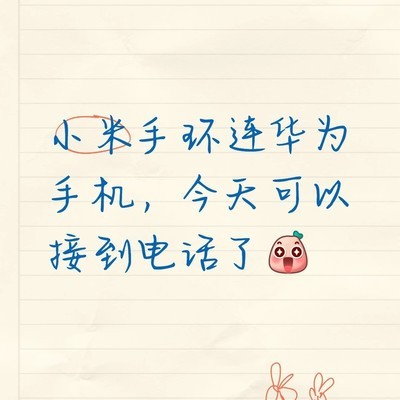 小米手环连华为
手机，今天可以
接到电话了